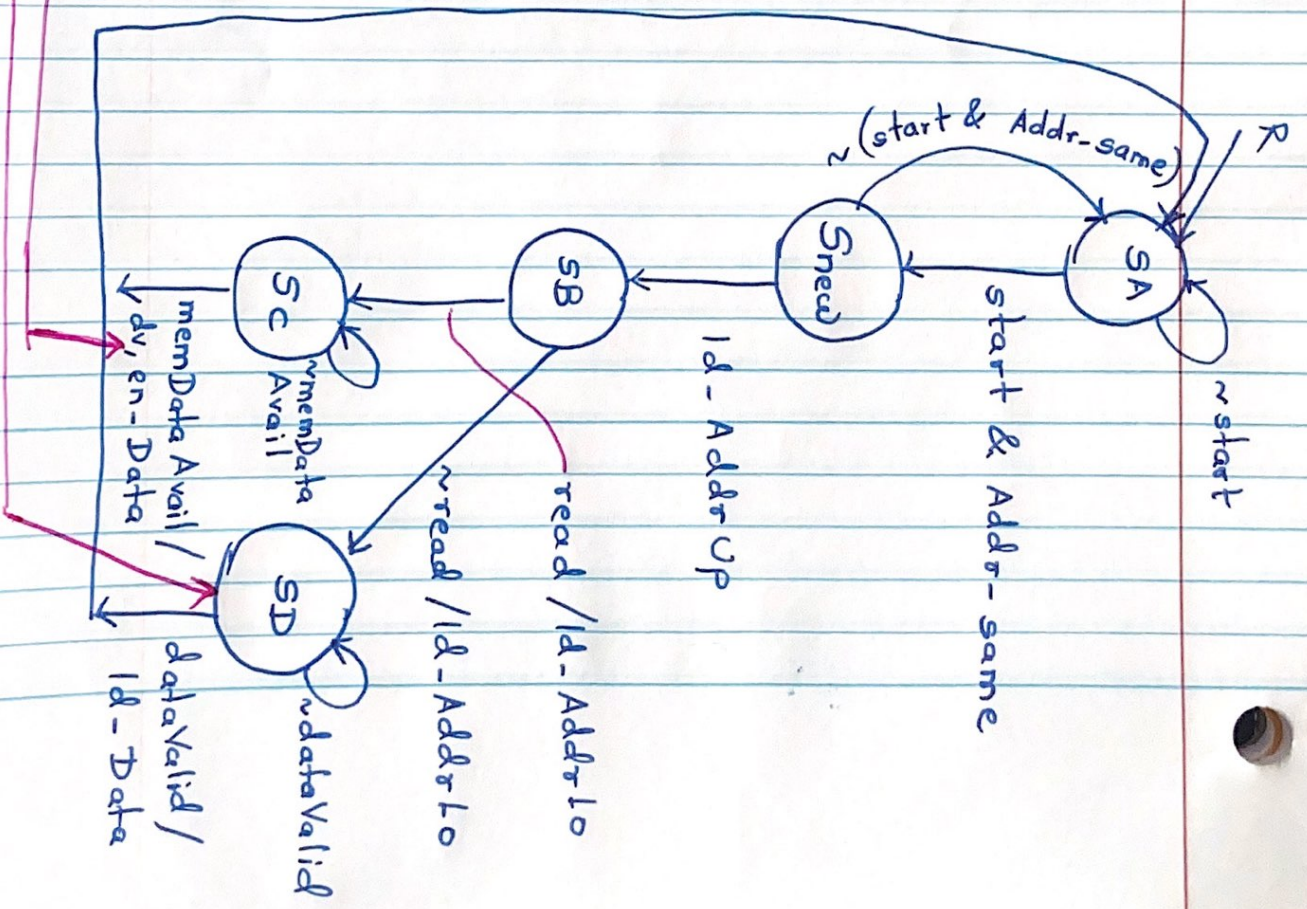 R
SA
~start
~(start & Addr-same)
start & Addr-same
Snew
ld-AddrUp
SB
read/ld-AddrLo
~read/ld-AddrLo
SC
~memData
Avail
memDataAvail/
dv, en-Data
SD
~dataValid
dataValid/
ld-Data